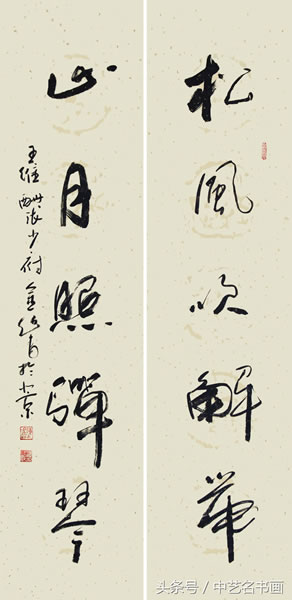 松風吹解帶
山月照彈琴
王維酬張少府 於北京
头条号 / 中艺名书画